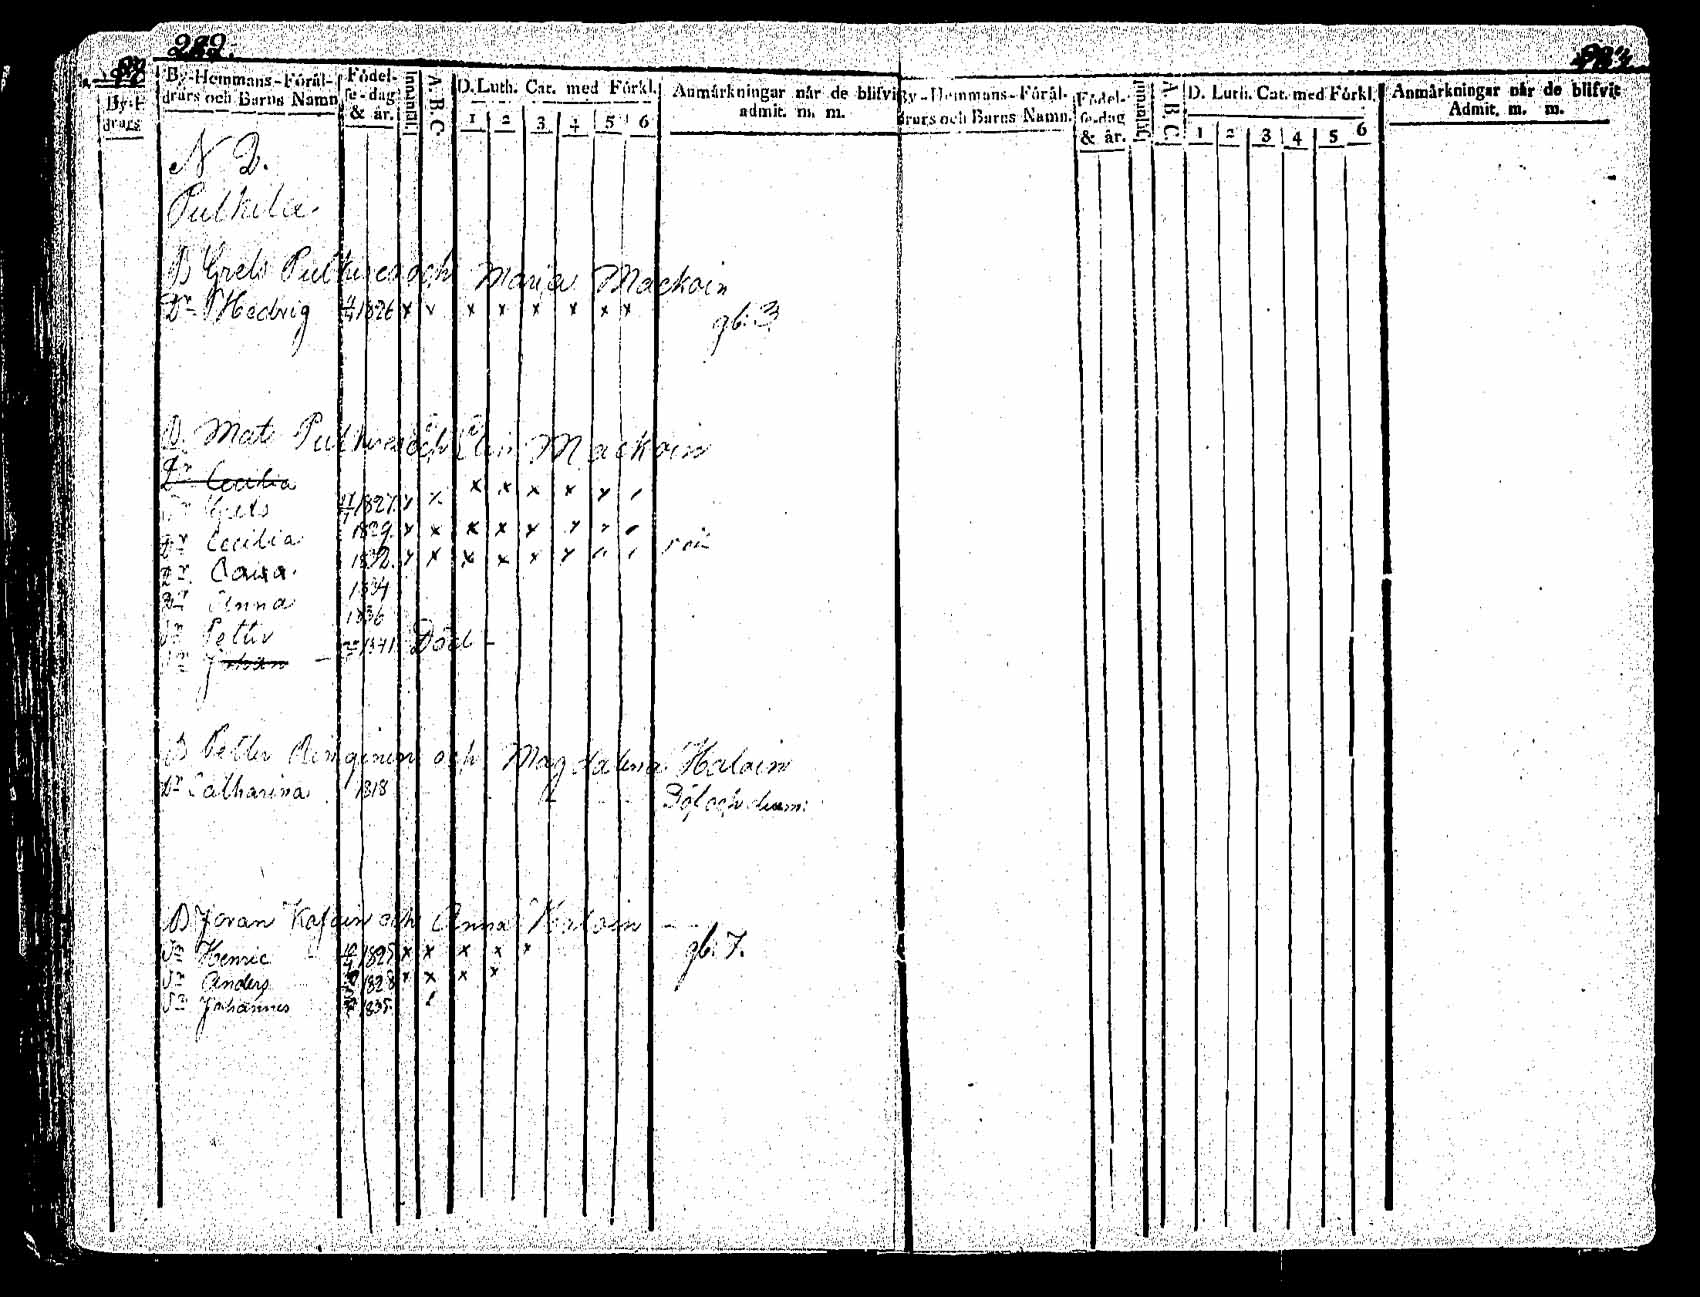 282.
By-Hemmans-Förål-
drars och Barns Namn.
Födel-
se-dag
& år.
Innantil.
A. B. C.
D. Luth. Cat. med Förkl.
1 2 3 4 5 6
Anmärkningar når de blifvit
admit. m. m.
N 2.
Pulkila
B Grels Pulkinen och Maria Mackoin
Dr Hedvig 1826 x v x x x x x x
gb: 3
B. Mats Pulkinen och Elin Mackoin
Dr Cecilia
Sn Grels 1827.
Dr Cecilia 1829.
Dr Caisa. 1832.
Dr Anna 1834
Sn Petter 1836
Sn Johan 1841 Död -
B Petter Ronginen och Magdalena Haloin
Dr Catharina 1818
B Joran Karjain och Anna Haloin
Sn Henric 1825 x x x x x
gb: 7.
Sn Anders 1828 x x x x
Sn Johannes 1835.
By-Hemmans-Förål-
drars och Barns Namn.
Födel-
se-dag
& år.
Innantil.
A. B. C.
D. Luth. Cat. med Förkl.
1 2 3 4 5 6
Anmärkningar når de blifvit
Admit. m. m.